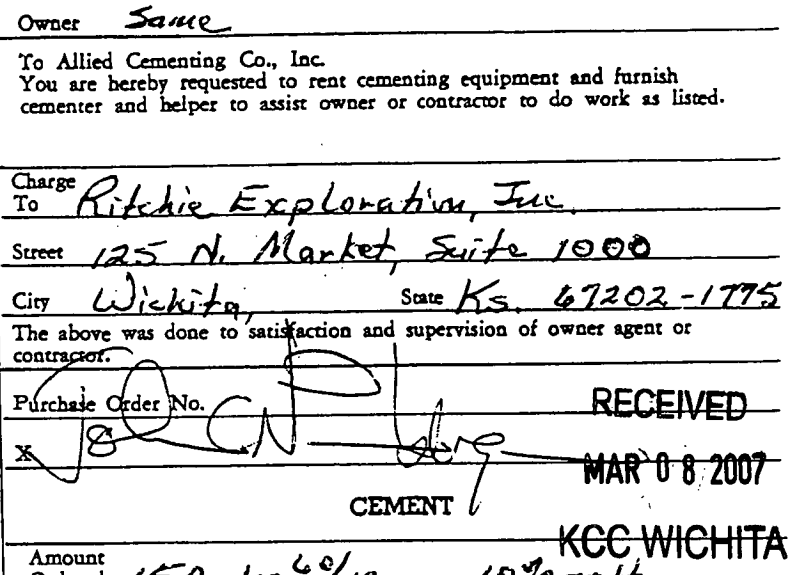 Owner Same
To Allied Cementing Co., Inc.
You are hereby requested to rent cementing equipment and furnish
cementer and helper to assist owner or contractor to do work as listed.
Charge
To Ritchie Exploration, Inc.
Street 125 N. Market, Suite 1000
City Wichita, State Ks. 67202-1775
The above was done to satisfaction and supervision of owner agent or
contractor.
Purchase Order No.
RECEIVED
X
MAR 08 2007
CEMENT
KCC WICHITA
Amount